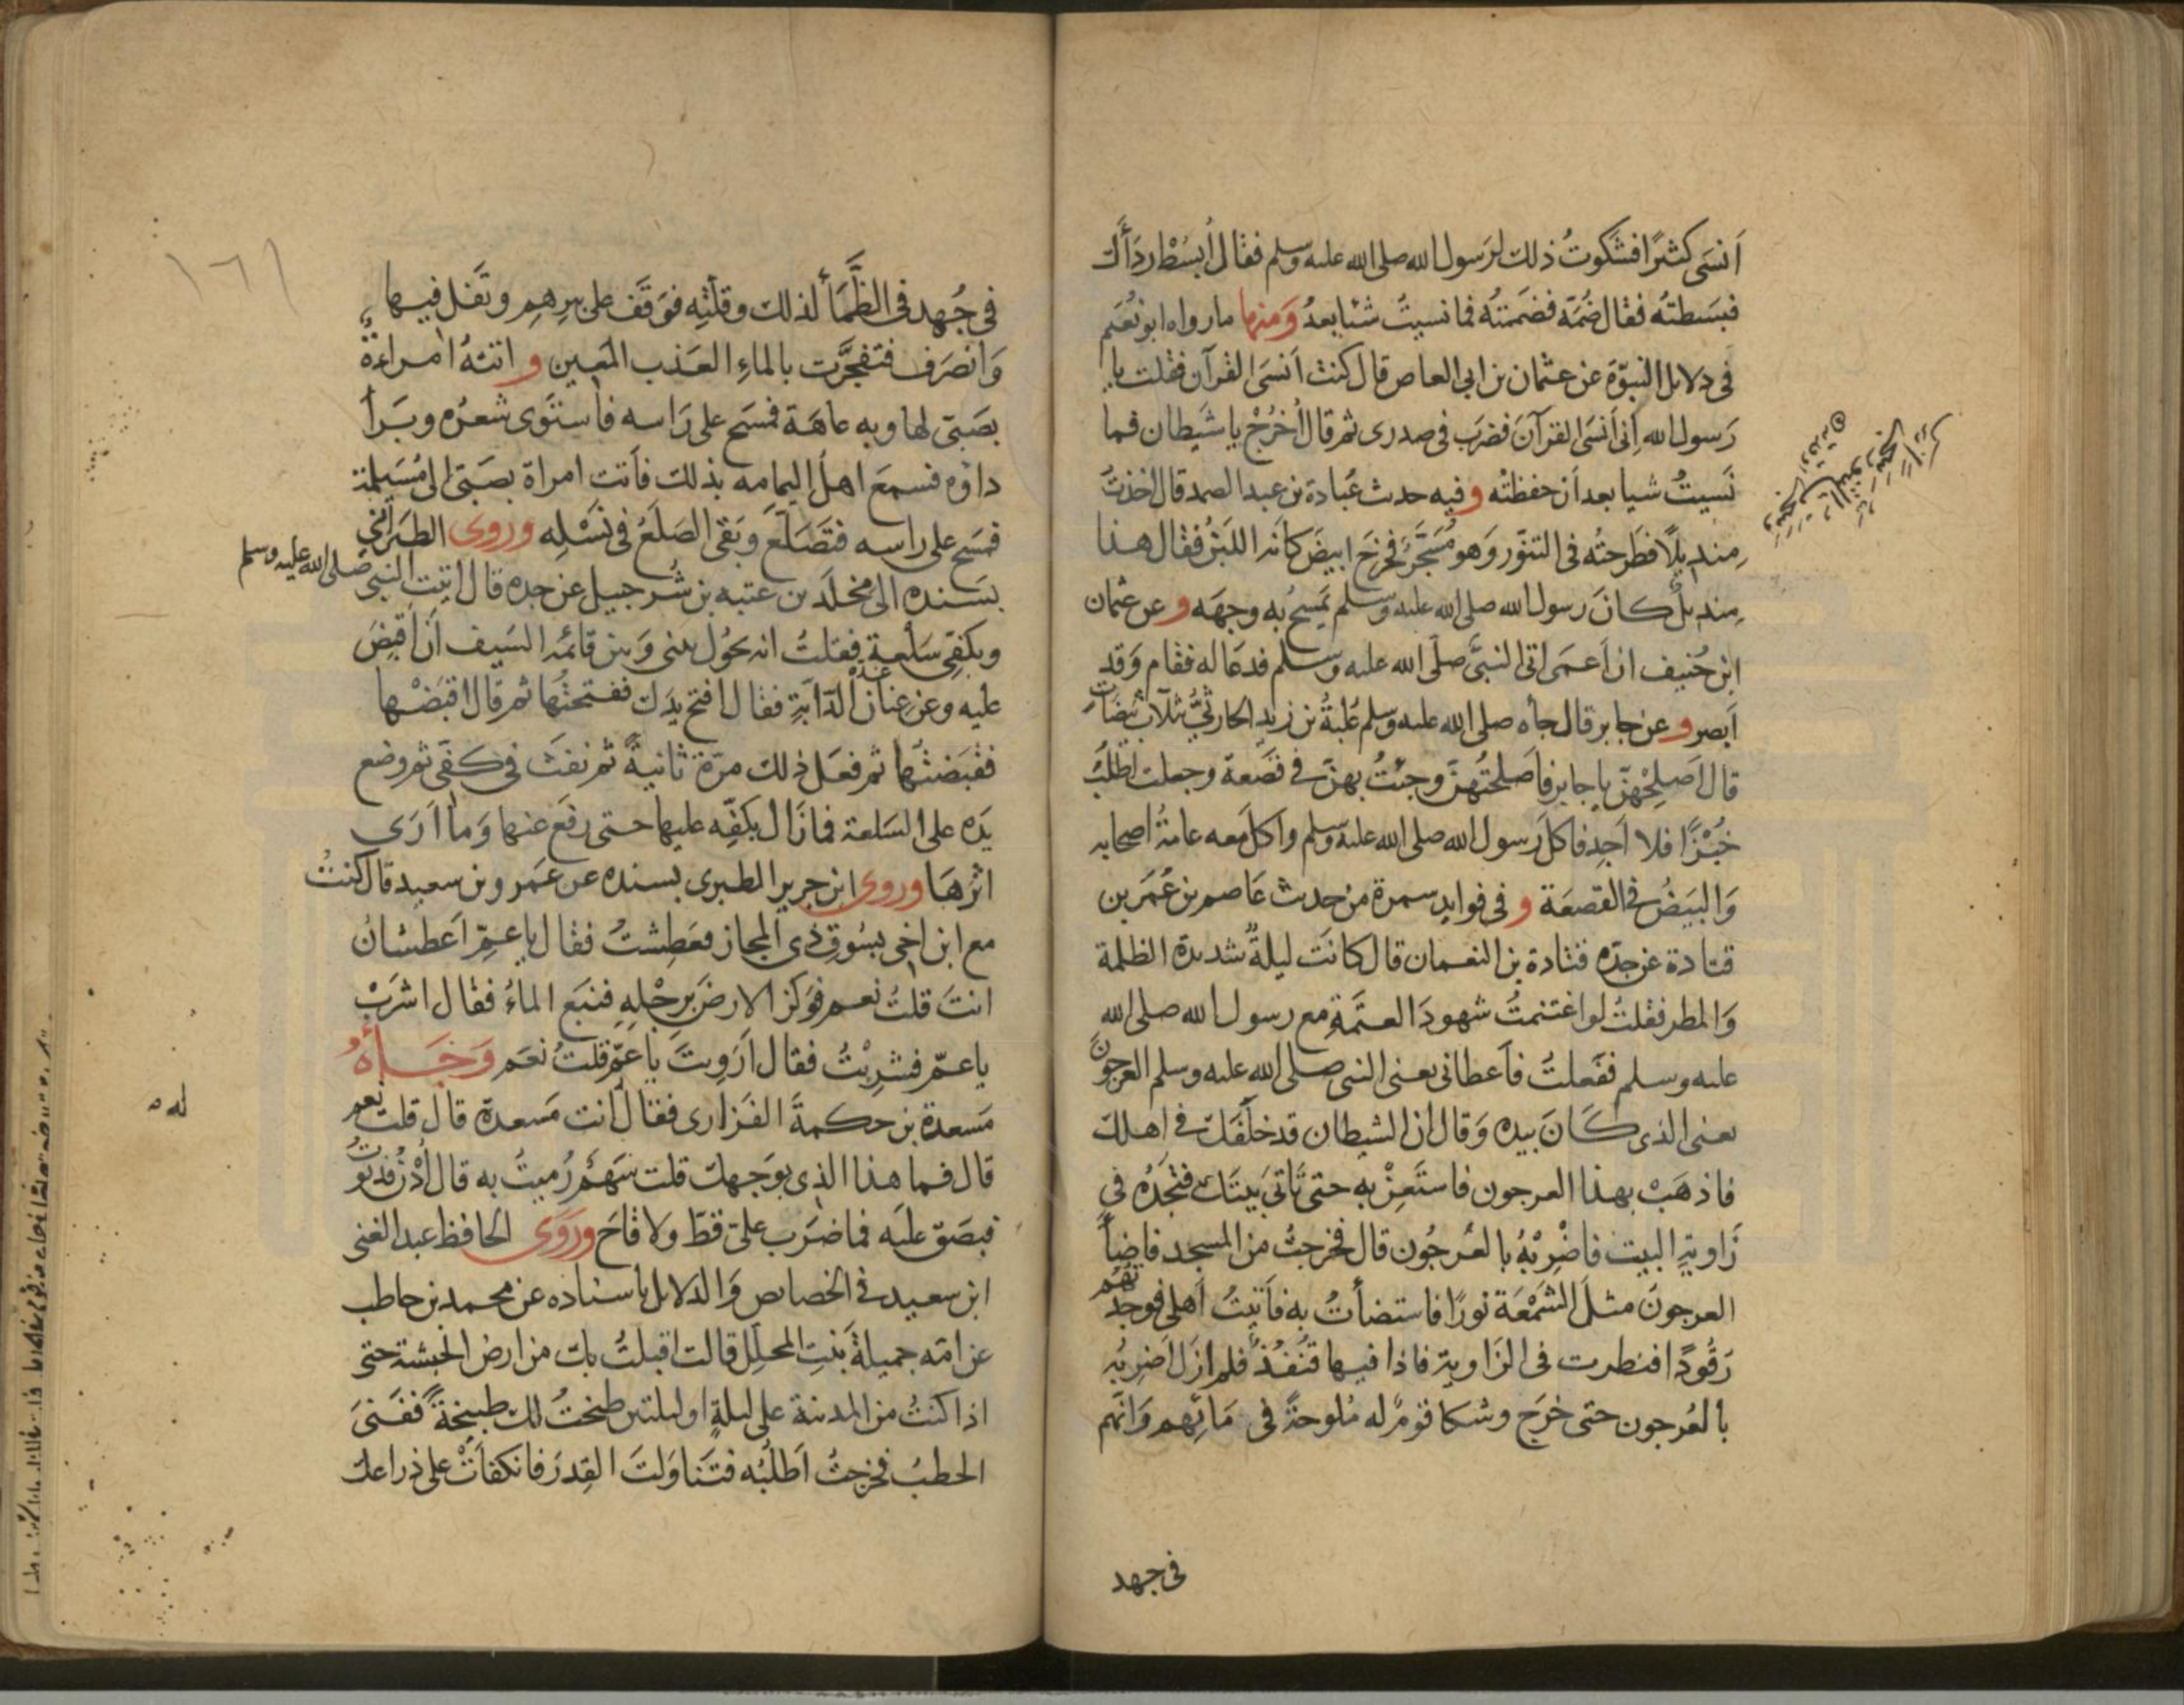 اَنسَى كثيرًا فشكوتُ ذلك لرَسول الله صلى الله عليه وسلم فقال اُبسُطْ ردَأَك
فبَسَطتُه فقال ضُمَّه فضَممتُه فما نسيتُ شئا بعدُ وَمنها ما رواه ابو نُعَيم
فى دلايل النبوّة عن عثمان بن ابى العاص قال كنت اَنسَى القرآن فقلت يا
رَسول الله اِنى اَنسَى القرآنَ فضرَب فى صدرى ثم قال اُخرُجْ يا شيَطان فما
نَسيتُ شيا بعد اَن حفظتُه وفيه حدث عُبادة بن عبد الصمد قال اخذتُ
مِنديلًا فطَرحتُه فى التنوّر وَهو مُسَجَّرٌ فخرَجَ ابيضَ كانه اللبَنُ فقال هذا
مِنديلٌ كانَ رسول الله صلى الله عليه وسلم يَمسحُ به وجهَه وعن عثمان
ابن حُنيف ان اَعمَى اتى النبىَّ صلى الله عليه وسلم فدعَا له فقام وَقد
اَبصر وعن جابر قال جأه صلى الله عليه وسلم عُلبةُ بن زيد الحارثىُّ بثلاث بَيضَاتٍ
قال اَصلِحْهنّ يا جابر فاَصلحتُهنّ وجئتُ بهنّ فى قَصَعة وجعلت اطلبُ
خبُزًا فلا اَجِد فاكلَ رسول الله صلى الله عليه وسلم واكلَ معه عامةُ اصحابه
وَالبَيضُ فى القصعَة و فى فوايد سمرة من حدث عَاصم بن عُمَر بن
قتادة عن جدّه قتادة بن النعمان قال كانَت ليلةٌ شديدة الظلمة
وَالمطر فقلتُ لو اغتنمتُ شهودَ العتَمَةِ مع رسول الله صلى الله
عليه وسلم ففَعلتُ فاَعطانى يعنى النبى صلى الله عليه وسلم العرجونَ
يعنى الذى كَانَ بيده وَقال ان الشيطان قد خلَفَك فى اهلك
فاذهَبْ بهذا العرجون فاستَعِزْ به حتى تَأتَى بَيتَك فتَجدُه فى
زَاويةِ البيت فاضْرِبْهُ بالعُرجُون قال فخرجتُ من المسجد فاضأَ
العرجونَ مثلَ الشَمْعَة نورًا فاستضأتُ به فاَتيتُ اَهلى فوجدتهُم
رَقُودًا فنظرت فى الزَاوية فاذا فيها قنُفُذٌ فلم ازَل اَضرِبُه
بالعُرجون حتى خرَج وشكا قومٌ له مُلوحةً فى مَائِهم وَانَّهم
فى جهد
١٦١
فى جُهد فى الظَّمَأ لذلك وقلّتِه فوَقَف على بيرِهِم وتَفَل فيها
وَانصَرف فتفجّرَت بالماءِ العَذب المَعين و اتتهُ امراءةٌ
بصَبىّ لها وبه عاهَة فمسَح على رَاسه فاستَوى شعرُه وبَرأَ
داؤه فسمعَ اهلُ اليمامه بذلك فاَتت امراة بصَبىّ الى مُسَيلمة
فمسَح على راسه فتَصَلّعَ وبَقى الصَلَعُ فى نَسْلِه وروى الطبَرانىّ
بسَنده الى مخلَد بن عتبه بن شُرحبيل عن جده قال اتيت النبى صلى الله عليه وسلم
وبكفّى سَلْعة فقلتُ انه يحُول بينى وَبين قائمَه السَيف اَن اَقبِضَ
عليه وعن عِنان الدّابّة فقال افتح يدَك ففتحتُها ثم قال اقبَضْها
فقبَضتُها ثم فعَل ذلك مرّة ثانيةً ثم نفَثَ فى كفّى ثم وضع
يَده على السَلعة فما زَال بكفّه عليها حتى رفَع عنها وَما اَرَى
اثرهَا وروى ابن جرير الطبرى بسنده عن عَمرو بن سعيد قال كنتُ
مع ابن اخى بسُوق ذى المجاز فعَطِشتُ فقال يا عمّ اَعطشانُ
انتَ قلتُ نعم فوَكز الارضَ برِجْلِهِ فنبَع الماءُ فقال اشرَبْ
يا عمّ فشرِبْتُ فقال اَرَوِيتَ يا عمّ قلتُ نعَم وَجَاَهُ
مَسعدة بن حكمةَ الفَزارى فقال اَنت مَسعدة قال قلت نعم
قال فما هذا الذى بوَجهك قلت سَهْمٌ رُميتُ به قال اُدْنُ فدنَوتُ
فبصَق عليَه فما ضرَب علىّ قطّ ولا قاحَ وروَى الحافظ عبد الغنى
ابن سعيد فى الخصايص وَالدلايل باسناده عن محمد بن حاطب
عن امّه جميلةَ بنتِ المحلِل قالت اقبلتُ بك من ارض الحبَشة حتى
اذا كنتُ من المدينة على ليلةٍ او ليلتين طبختُ لك طبيخةً ففَنىَ
الحطبُ فخرجتُ اَطلبُه فتَناوَلتَ القِدرَ فانكفأتْ على ذراعك